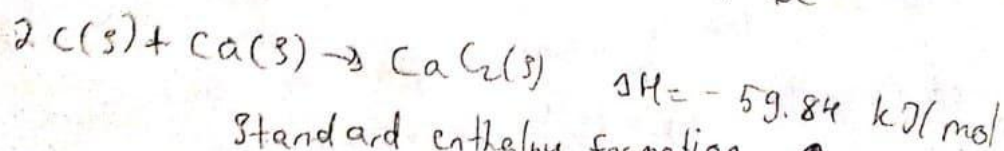 2 C(s) + Ca(s) → CaC₂(s) ΔH = - 59.84 kJ/mol
Standard enthalpy formation